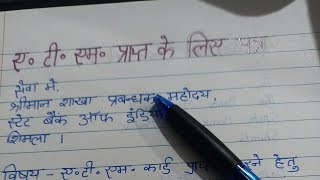 ए. टी. एम. प्राप्त के लिए पत्र
सेवा में,
श्रीमान शाखा प्रबन्धक महोदय,
स्टेट बैंक ऑफ इंडिया
शिमला ।
विषय - ए.टी.एम. कार्ड प्राप्त करने हेतु